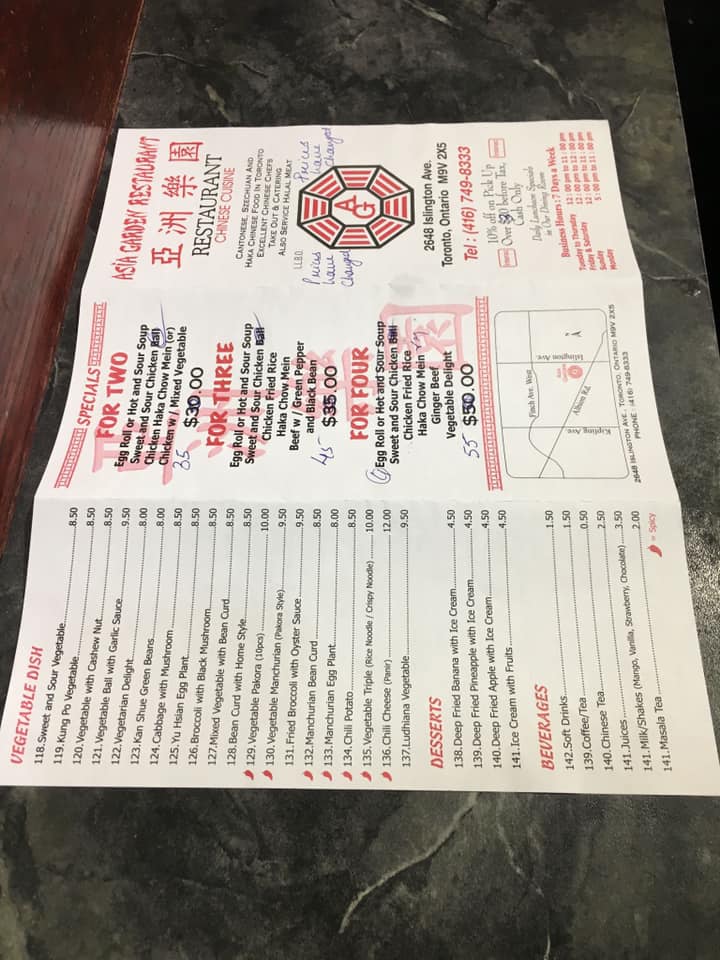 VEGETABLE DISH
118.Sweet and Sour Vegetable 8.50
119.Kung Po Vegetable 8.50
120.Vegetable with Cashew Nut 8.50
121.Vegetable Ball with Garlic Sauce 9.50
122.Vegetarian Delight 8.00
123.Kan Shue Green Beans 8.00
124.Cabbage with Mushroom 8.50
125.Yu Hsian Egg Plant 8.50
126.Broccoli with Black Mushroom 8.50
127.Mixed Vegetable with Bean Curd 8.50
128.Bean Curd with Home Style 8.50
129.Vegetable Pakora (10pcs) 10.00
130.Vegetable Manchurian (Pakora Style) 9.50
131.Fried Broccoli with Oyster Sauce 9.50
132.Manchurian Bean Curd 8.50
133.Manchurian Egg Plant 8.00
134.Chili Potato 8.50
135.Vegetable Triple (Rice Noodle / Crispy Noodle) 10.00
136.Chili Cheese (Panir) 12.00
137.Ludhiana Vegetable 9.50
DESSERTS
138.Deep Fried Banana with Ice Cream 4.50
139.Deep Fried Pineapple with Ice Cream 4.50
140.Deep Fried Apple with Ice Cream 4.50
141.Ice Cream with Fruits 4.50
BEVERAGES
142.Soft Drinks 1.50
139.Coffee/Tea 1.50
140.Chinese Tea 0.50
141.Juices 2.50
141.Milk/Shakes (Mango, Vanilla, Strawberry, Chocolate) 3.50
141.Masala Tea 2.00
= Spicy
SPECIALS
FOR TWO
Egg Roll or Hot and Sour Soup
Sweet and Sour Chicken Ball
Chicken Haka Chow Mein (or)
Chicken w / Mixed Vegetable
35 $30.00
FOR THREE
Egg Roll or Hot and Sour Soup
Sweet and Sour Chicken Ball
Chicken Fried Rice
Haka Chow Mein
Beef w / Green Pepper
and Black Bean
45- $35.00
FOR FOUR
Egg Roll or Hot and Sour Soup
Sweet and Sour Chicken Ball
Chicken Fried Rice
Haka Chow Mein
Ginger Beef
Vegetable Delight
55 $50.00
Finch Ave. West
Albion Rd.
Islington Ave.
Kipling Ave.
2648 ISLINGTON AVE. TORONTO, ONTARIO M9V 2X5
PHONE : (416) 749-8333
ASIA GARDEN RESTAURANT
亞洲樂園
RESTAURANT
CHINESE CUISINE
CANTONESE, SZECHUAN AND
HAKA CHINESE FOOD IN TORONTO
EXCELLENT CHINESE CHEFS
TAKE OUT & CATERING
ALSO SERVICE HALAL MEAT
L.L.B.O.
Prices have Changed
Prices have Changed
AG
2648 Islington Ave.
Toronto, Ontario M9V 2X5
Tel : (416) 749-8333
10% off on Pick Up
Over before Tax,
Cash Only
Daily Luncheon Specials
in Our Dining Room
Business Hours : 7 Days a Week
Tuesday to Thursday 12 : 00 pm to 11 : 00 pm
Friday & Saturday 12 : 00 pm to 12 : 00 pm
Sunday 12 : 00 pm to 11 : 00 pm
Monday 5 : 00 pm to 11 : 00 pm